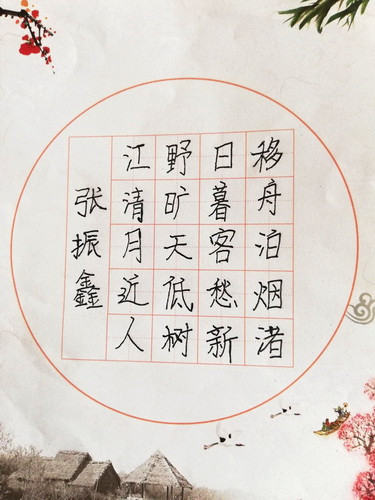 移舟泊烟渚
日暮客愁新
野旷天低树
江清月近人
张振鑫